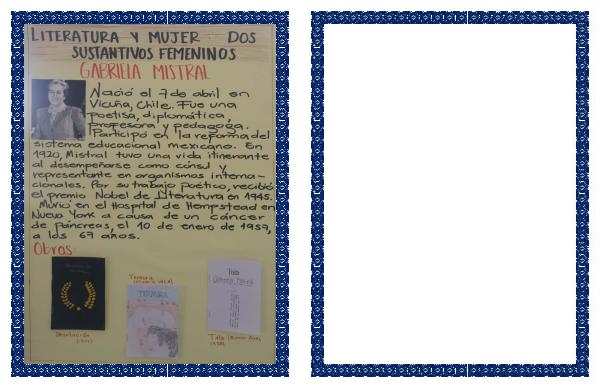 LITERATURA Y MUJER DOS
SUSTANTIVOS FEMENINOS
GABRIELA MISTRAL
Nació el 7 de abril en
Vicuña, Chile. Fue una
poetisa, diplomática,
profesora y pedagoga.
Participó en la reforma del
sistema educacional mexicano. En
1920, Mistral tuvo una vida itinerante
al desempeñarse como cónsul y
representante en organismos interna-
cionales. Por su trabajo poético, recibió
el premio Nobel de Literatura en 1945.
Murió en el Hospital de Hempstead en
Nueva York a causa de un cáncer
de páncreas, el 10 de enero de 1959,
a los 69 años.
Obras:
Ternura
TERNURA
Tala
Gabriela Mistral
Desolación
Tala (Buenos Aires